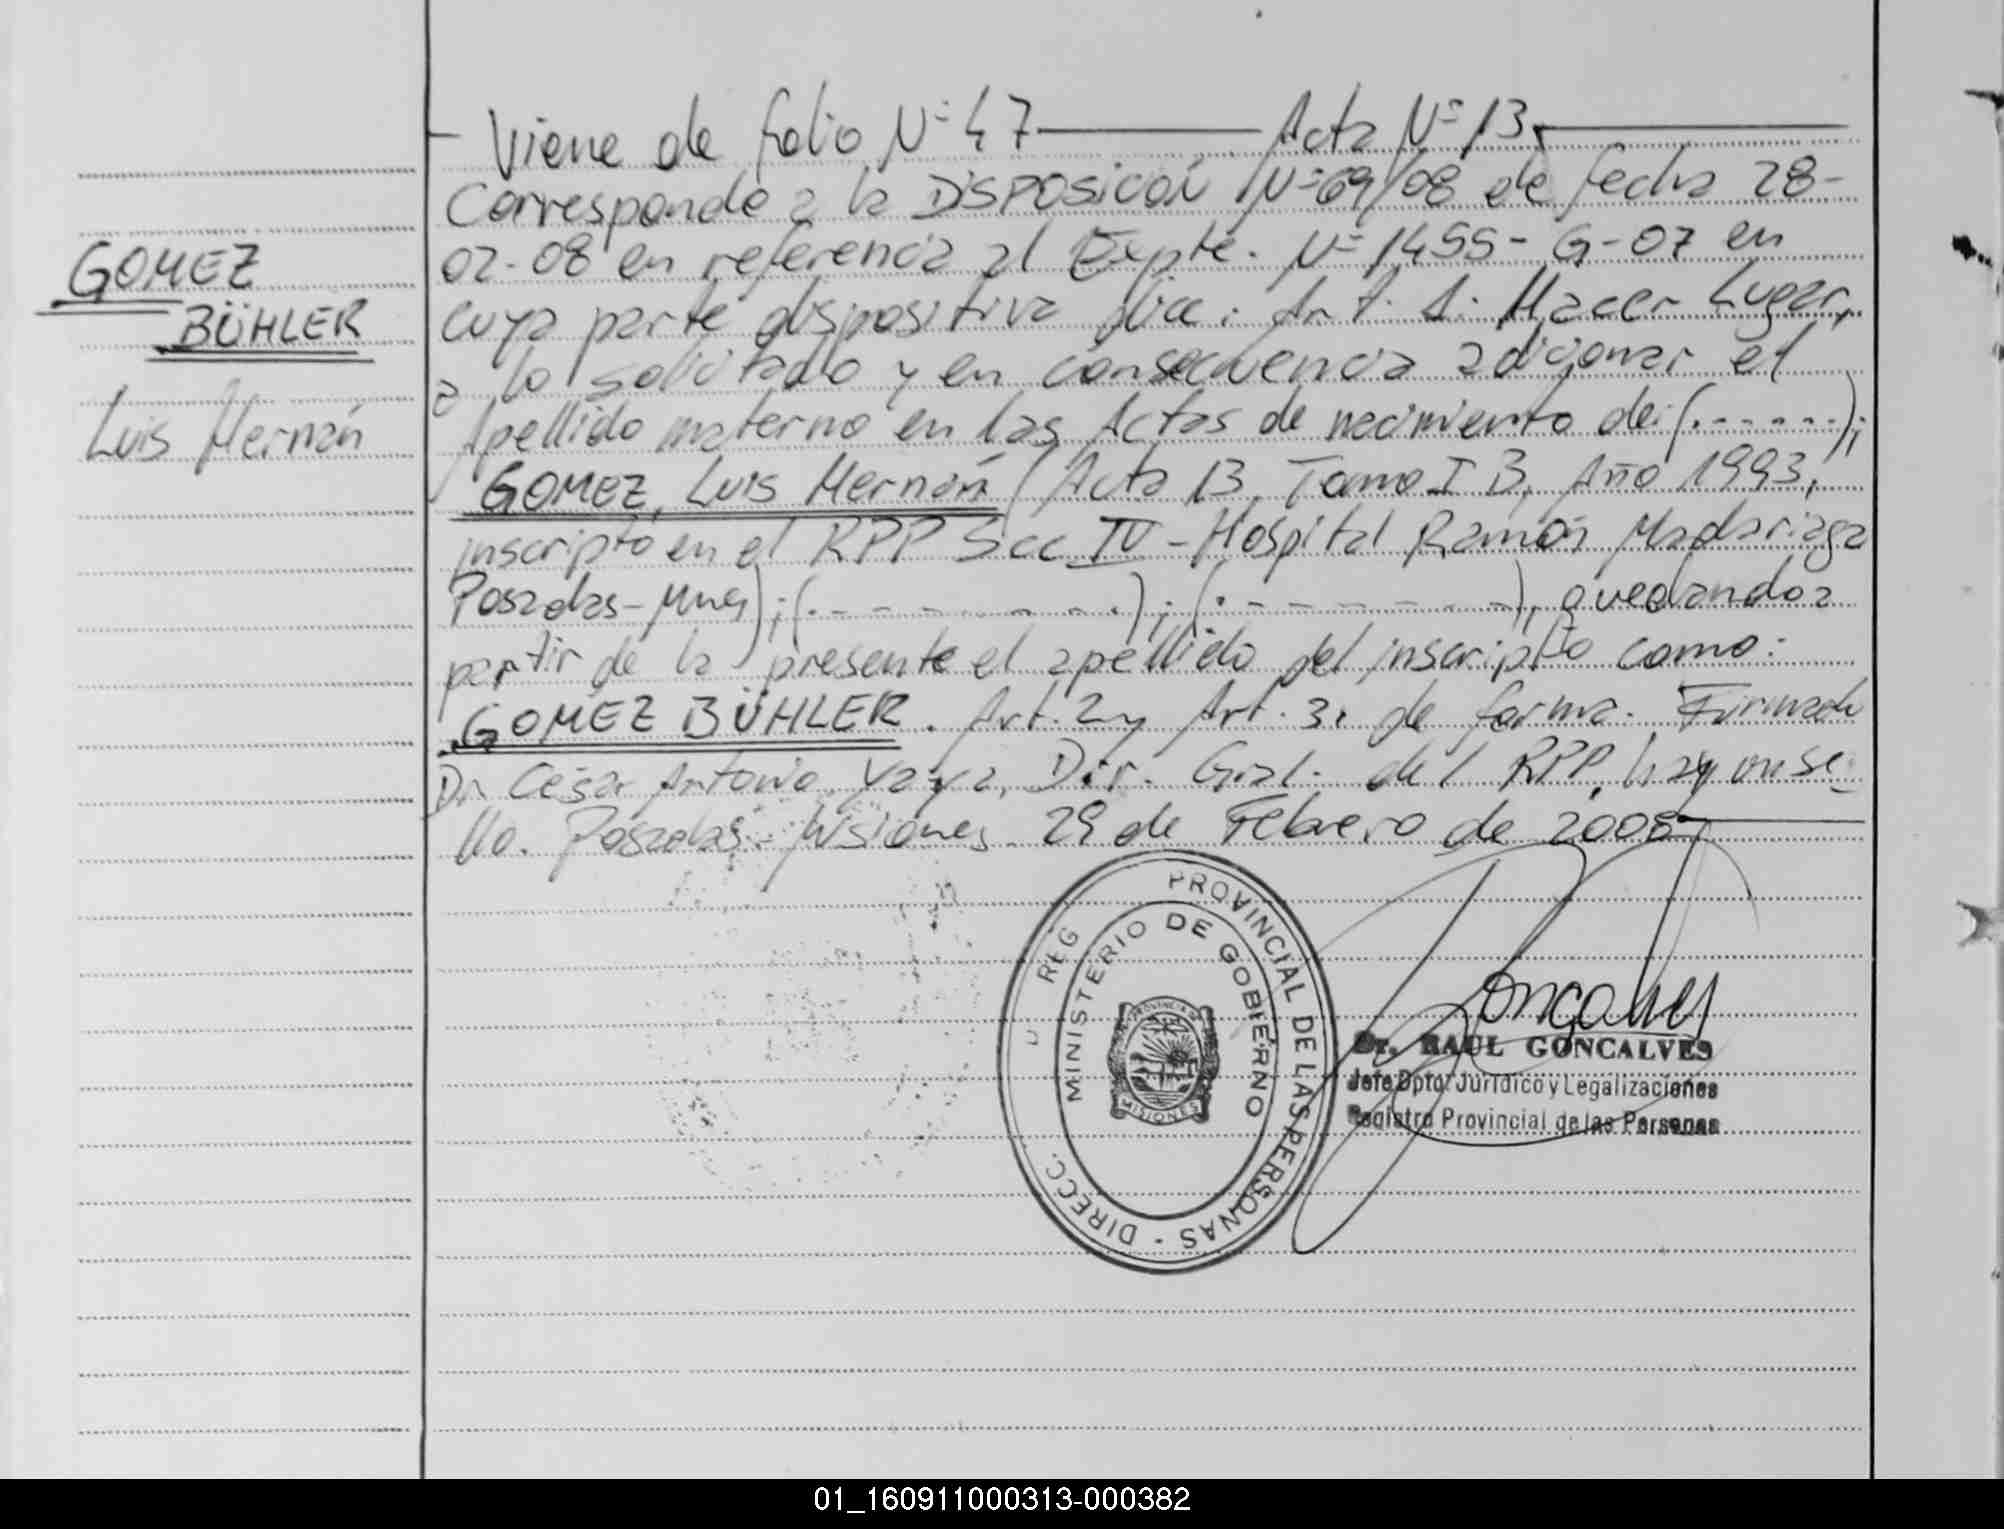 GOMEZ
BÜHLER
Luis Hernán
- Viene de folio Nº 47 ——— Acta Nº 13 ———
Corresponde a la DISPOSICIÓN Nº 69/08 de fecha 28-
02-08 en referencia al Expte. Nº 1455-G-07 en
cuya parte dispositiva dice: Art. 1: Hacer Lugar,
a lo solicitado y en consecuencia adicionar el
Apellido materno en las Actas de nacimiento de: (. - - - - - .);
GOMEZ, Luis Hernán (Acta 13, Tomo I B, Año 1993,
inscripto en el RPP Secc IV - Hospital Ramón Madariaga
Posadas-Mnes); (. - - - - - - - - .); (. - - - - - - - -), quedando a
partir de la presente el apellido del inscripto como:
GOMEZ BÜHLER. Art. 2 y Art. 3. de forma. Firmado
Dr. César Antonio Yaya, Dir. Gral. del RPP, hay un se_
llo. Posadas-Misiones. 29 de Febrero de 2008 ———
DIRECC. REG PROVINCIAL DE LAS PERSONAS -
MINISTERIO DE GOBIERNO
PROVINCIA DE
MISIONES
Goncalves
Dr. RAUL GONCALVES
Jefe Dpto. Jurídico y Legalizaciones
Registro Provincial de las Personas
01_160911000313-000382